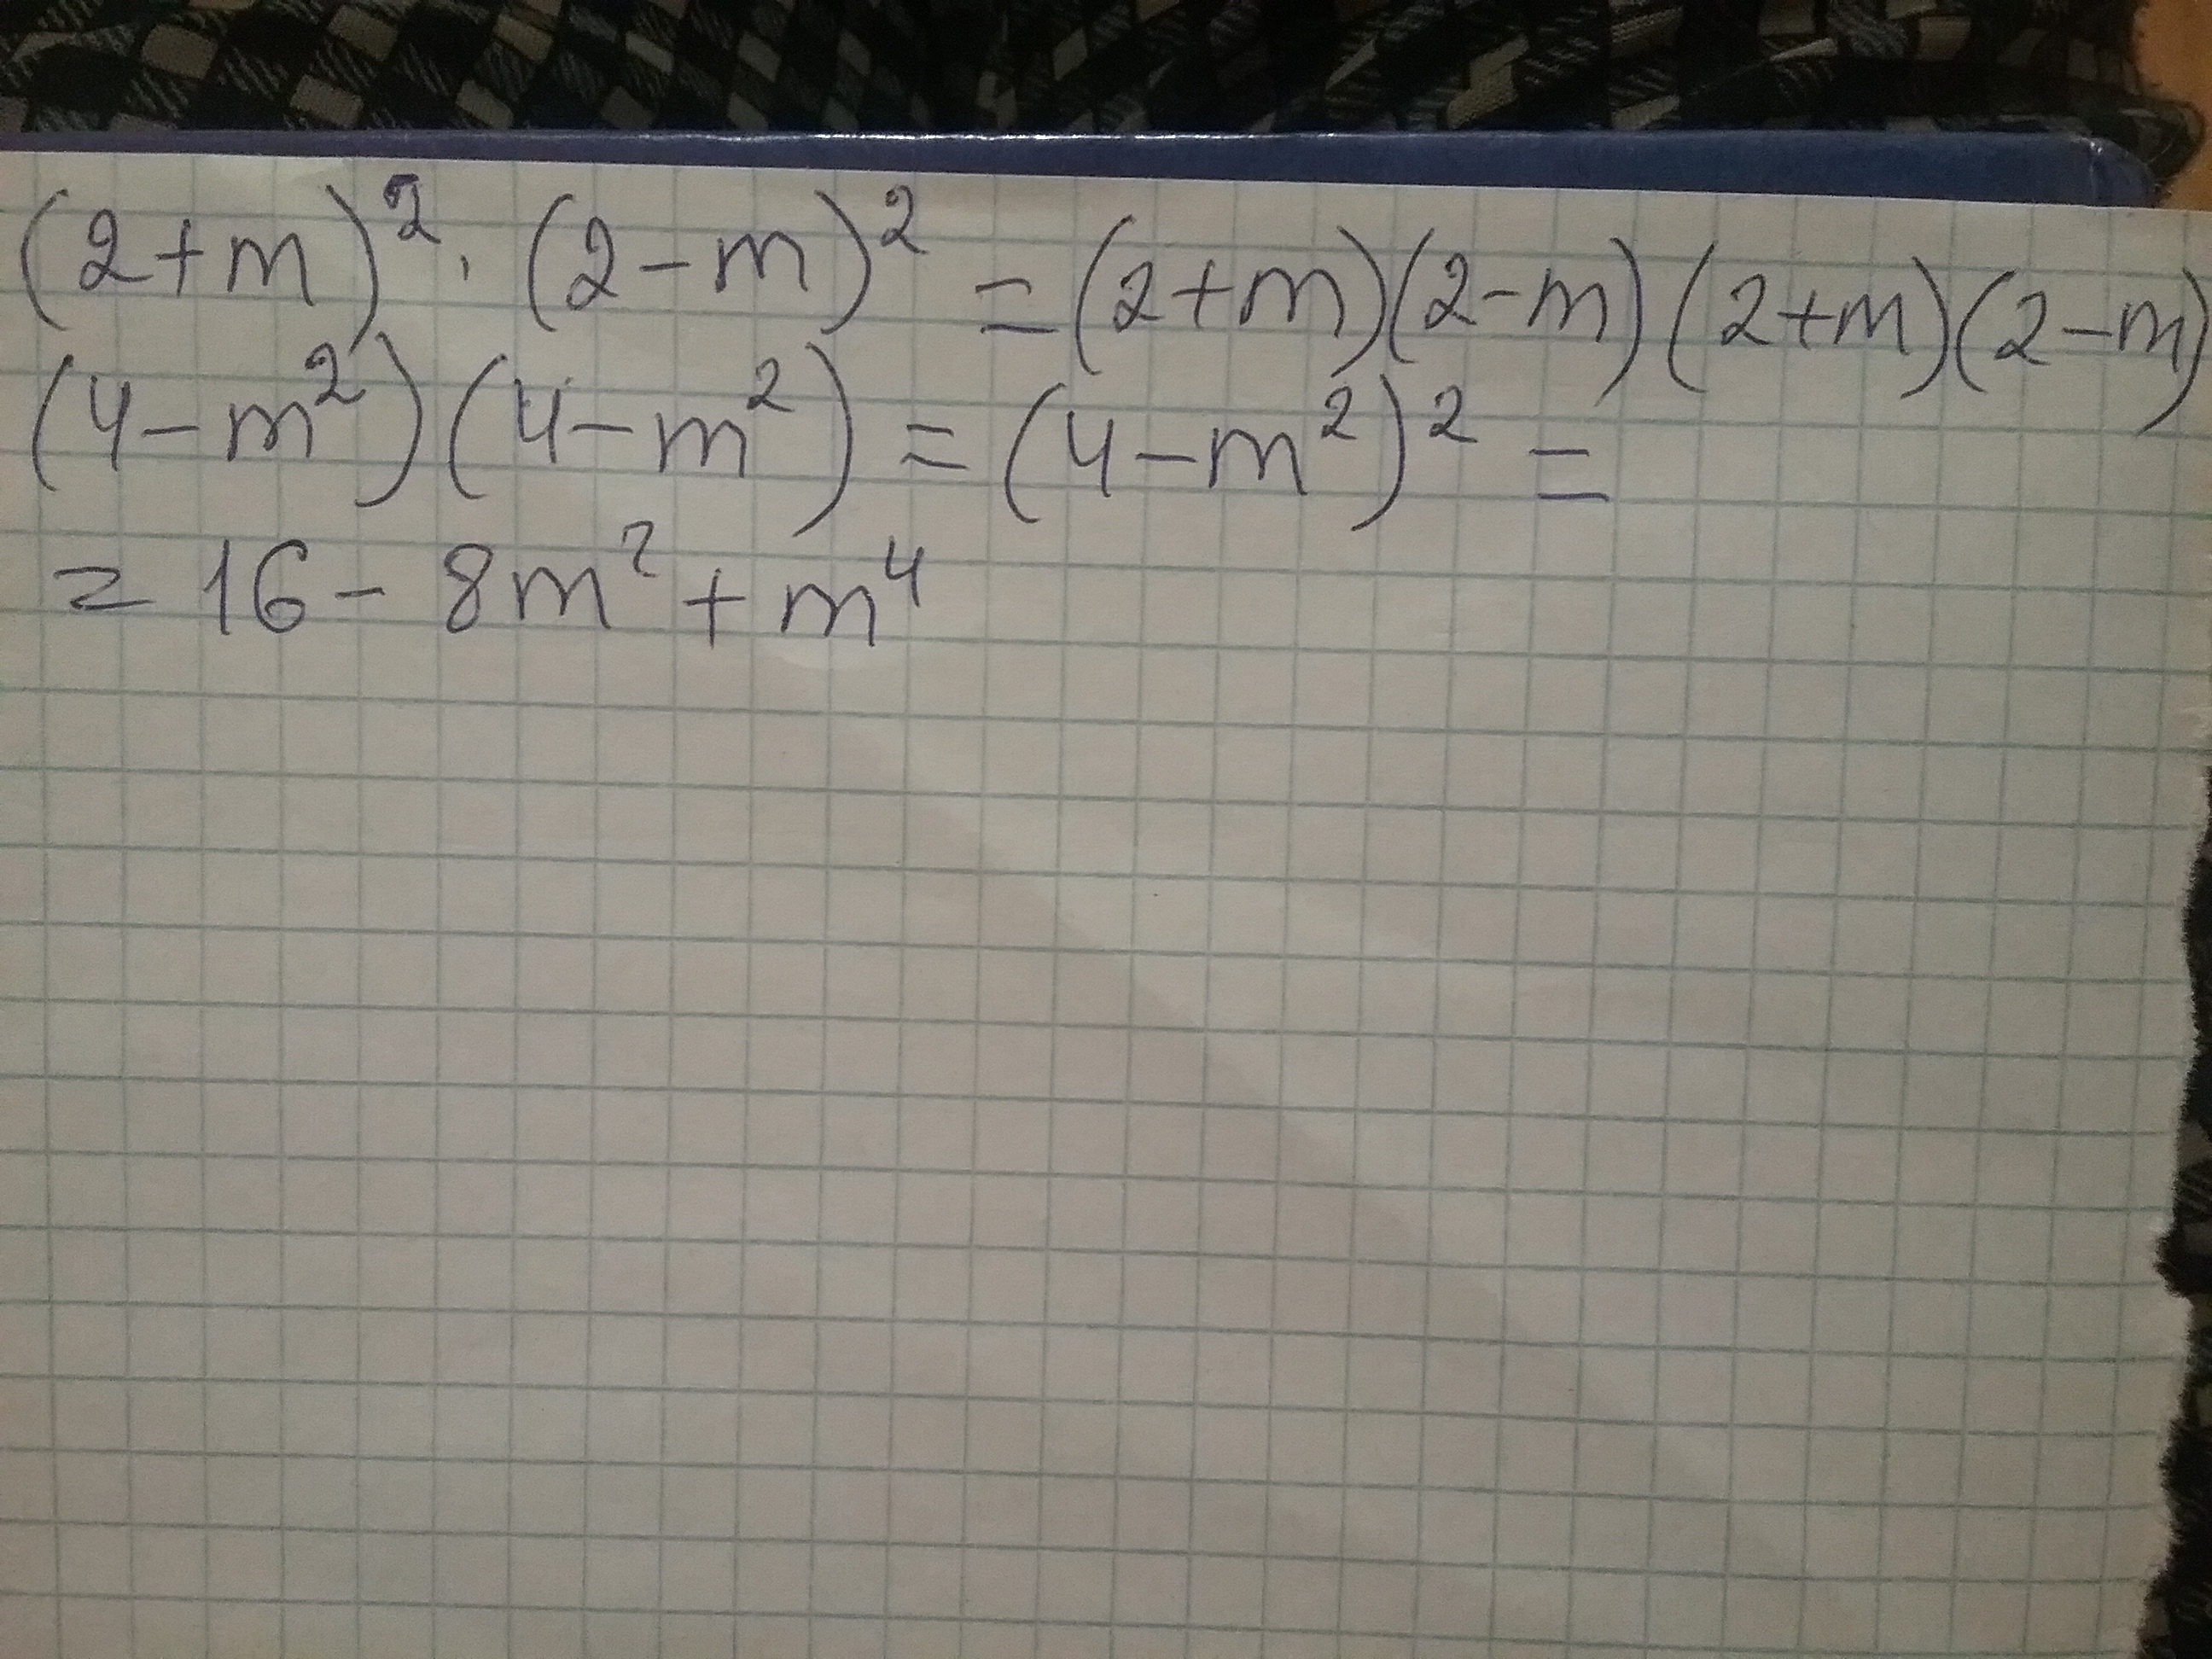 (2+m)² · (2-m)² = (2+m)(2-m)(2+m)(2-m)
(4-m²)(4-m²) = (4-m²)² =
= 16 - 8m² + m⁴